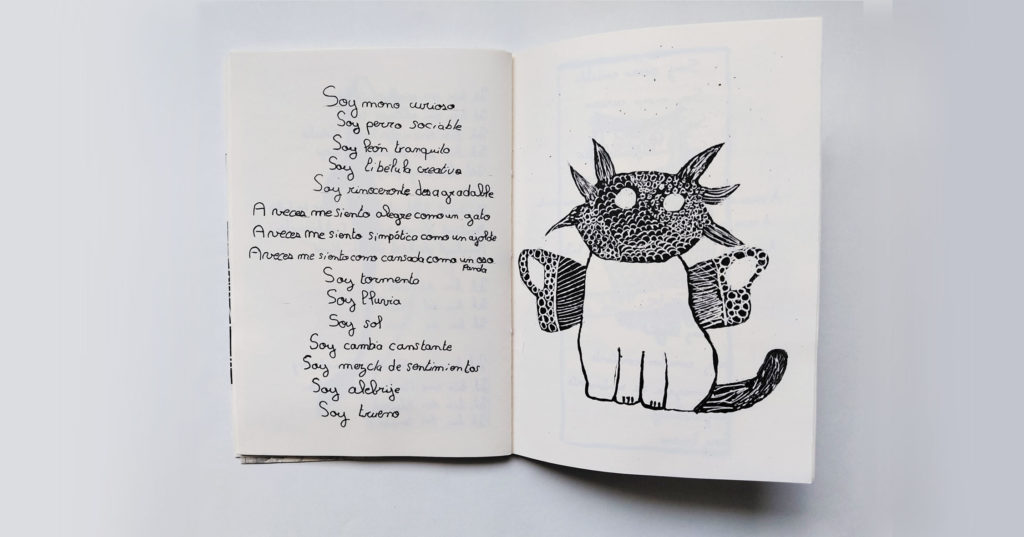 Soy mono curioso
Soy perro sociable
Soy león tranquilo
Soy libélula creativa
Soy rinoceronte desagradable
A veces me siento alegre como un gato
A veces me siento simpótica como un ajolote
A veces me siento como cansada como un oso
Panda
Soy tormento
Soy lluvia
Soy sol
Soy cambio constante
Soy mezcla de sentimientos
Soy alebrije
Soy trueno